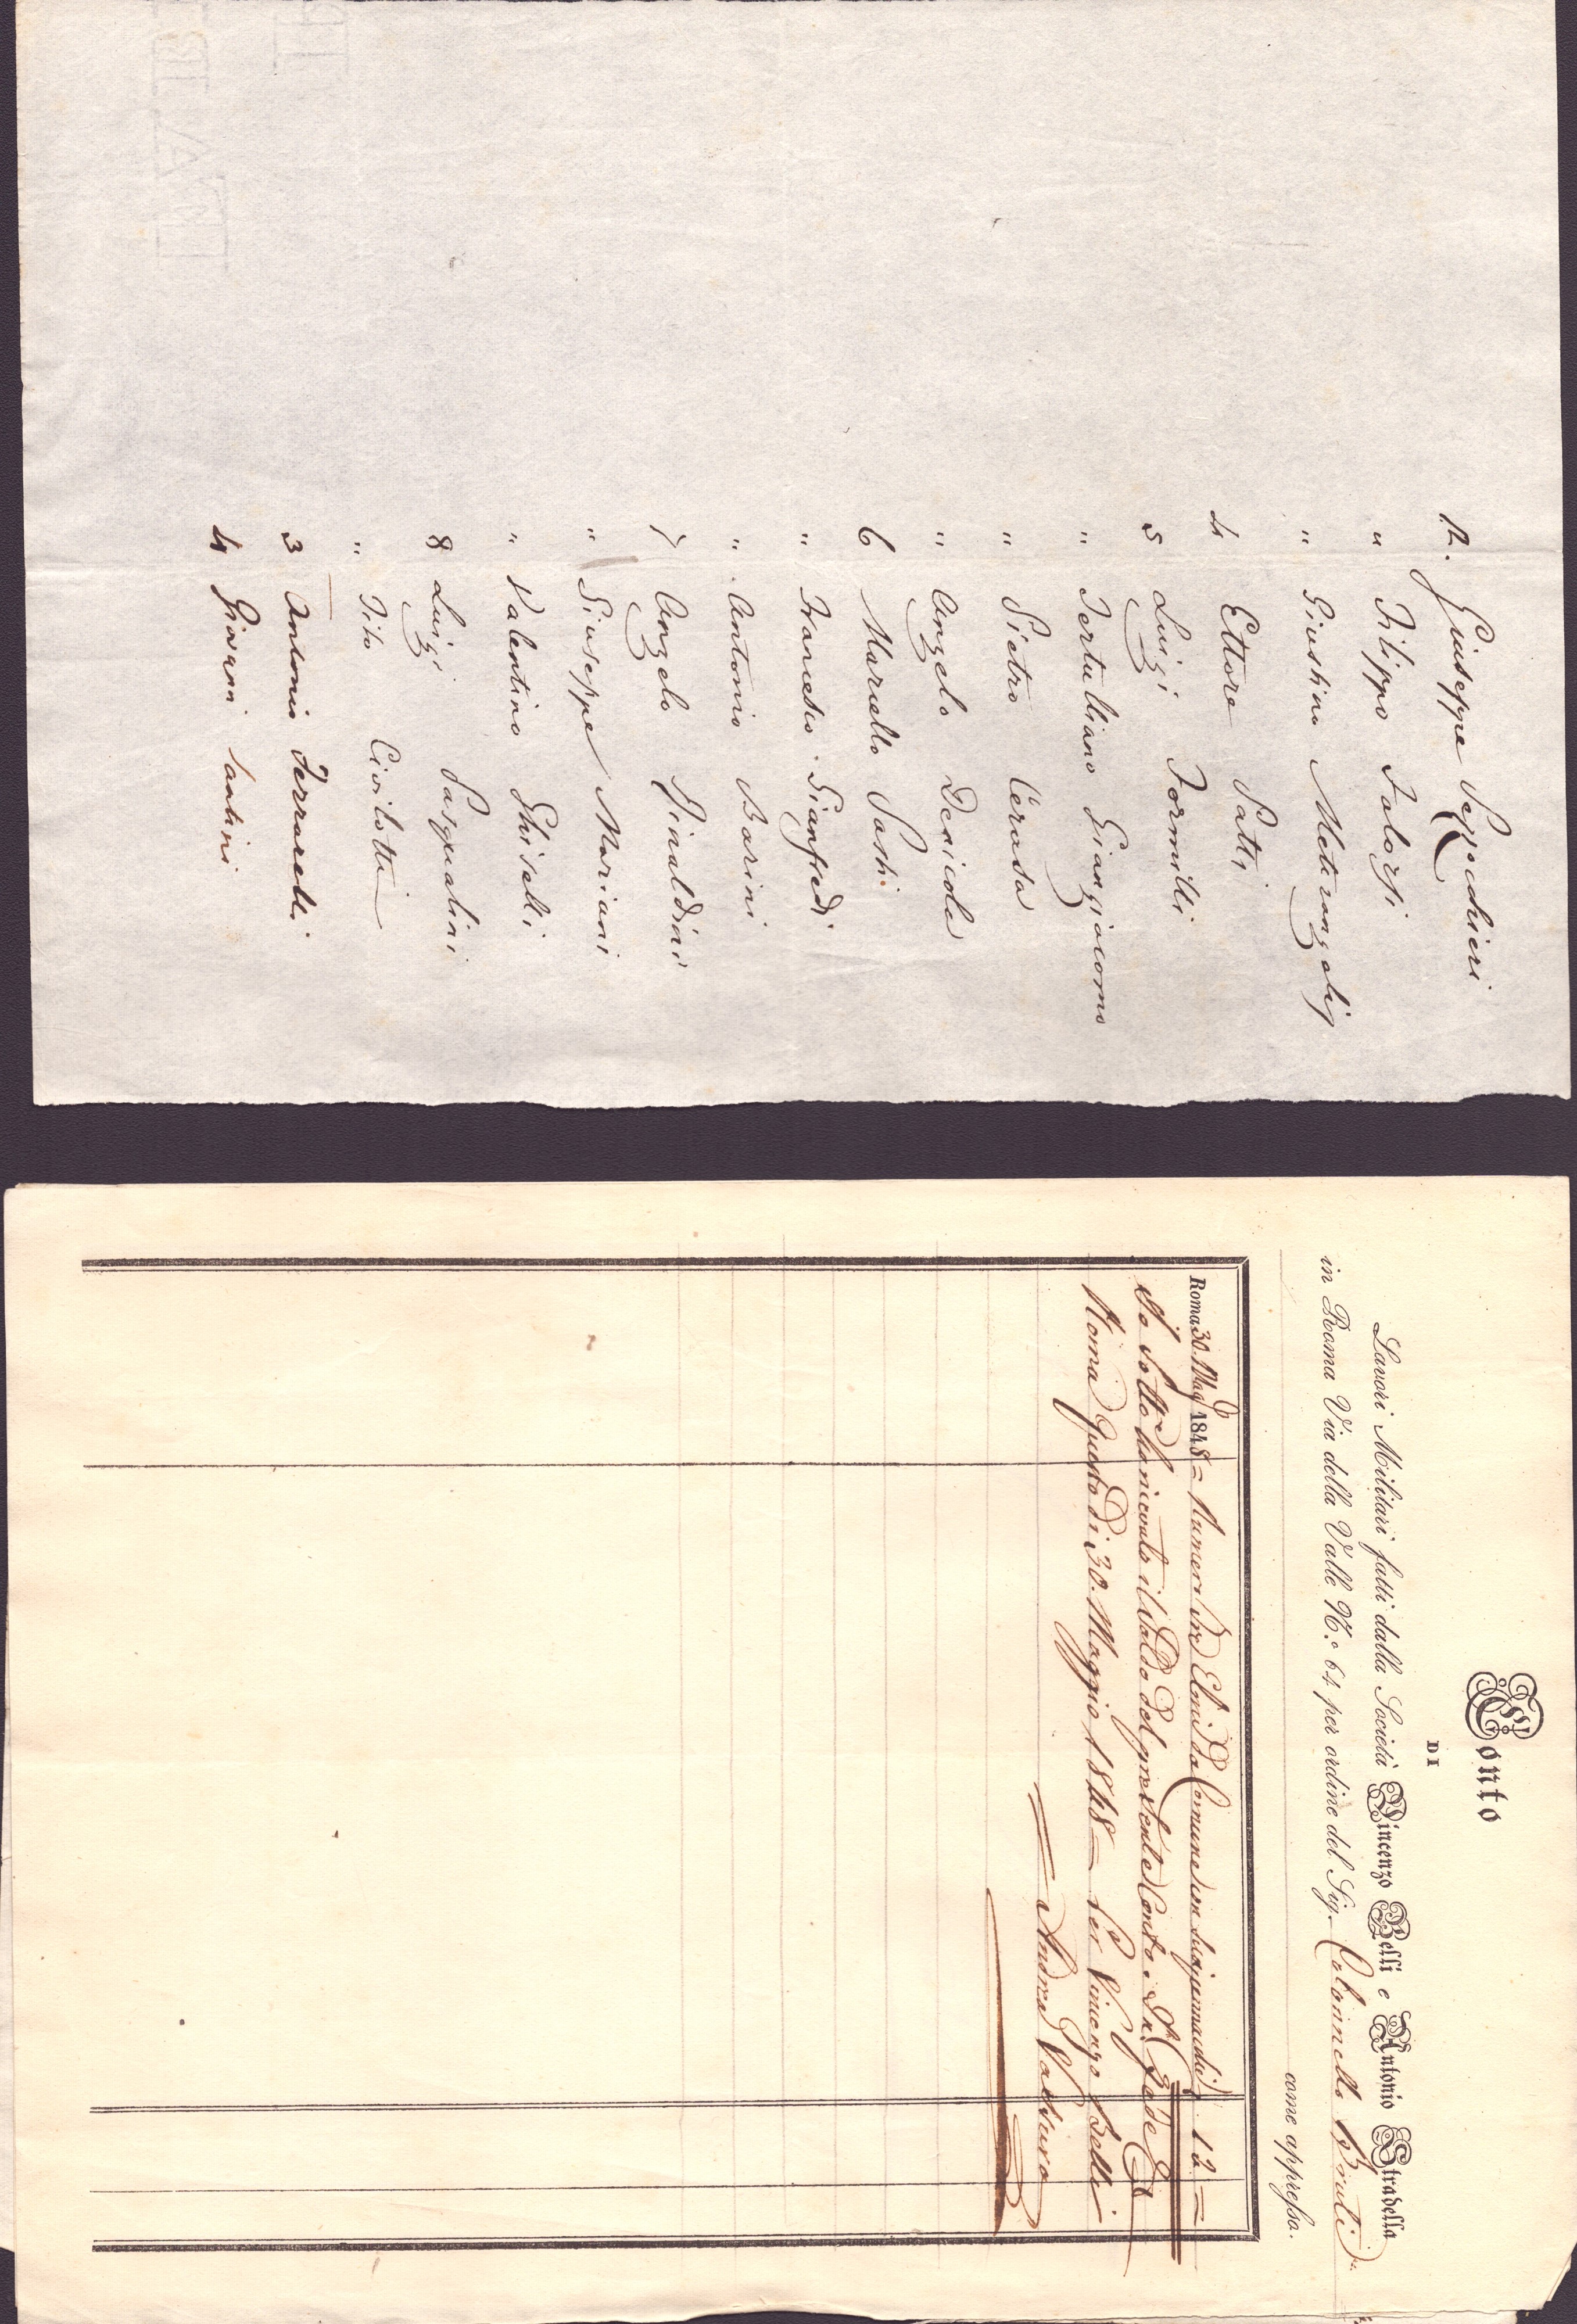 12. Giuseppe Seppochieri
" Filippo Falorsi
" Giustino Metrangolij
4 Ettore Patti
5 Luigi Formilli
" Tertulliano Giangiacomo
" Pietro Cerasa
" Angelo Denicola
6 Marcello Sarti.
" Francesco Gianfredi
" Antonio Barini
7 Angelo Rinaldini
" Giuseppe Mariani
" Valentino Ghiselli
8 Luigi Pasqualini
" Tito Civilotti
3 Antonio Ferrarelli
4 Giovanni Santini
Conto
DI
Lavori Militari fatti dalla Società Vincenzo Belli e Antonio Stradella
in Roma Via della Valle N.° 64 per ordine del Sig. Colonnello Bruti
come appresso.
Roma 30. Mag 1848 = Numero Elmi da Comune 12 =
Io Sotto ho ricevuto il Saldo del presente Conto. In Fede
Roma Questo dì 30. Maggio 1848 = Per Vincenzo Belli
= Andrea